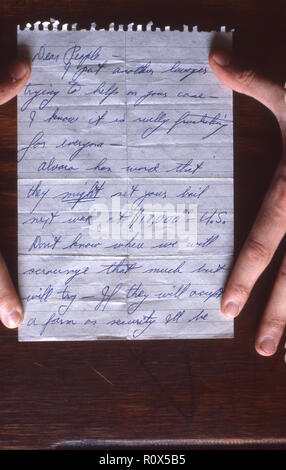 Dear People
I got another lawyer
trying to help on your case.
I know it is really frustrating
for everyone –
Alvaro has word that
they might set your bail
next week at $10,000⁰⁰ U.S.
Don't know where we will
scrounge that much but
will try – If they will accept
a farm as security I'll be
alamy
www.alamy.com - R0X5B5